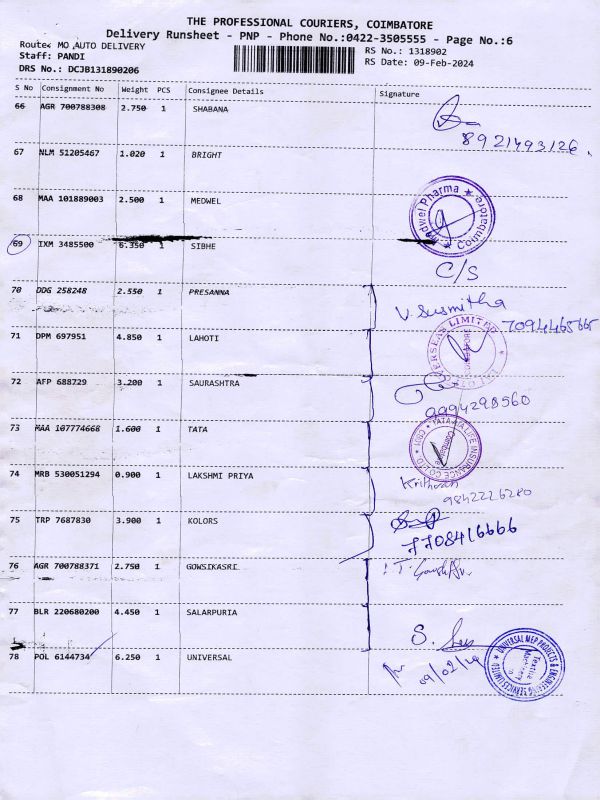 THE PROFESSIONAL COURIERS, COIMBATORE
Delivery Runsheet - PNP - Phone No.:0422-3505555 - Page No.:6
Route: MO AUTO DELIVERY
RS No.: 1318902
Staff: PANDI
RS Date: 09-Feb-2024
DRS No.: DCJB131890206
S No Consignment No Weight PCS Consignee Details Signature
66 AGR 700788308 2.750 1 SHABANA
8921493126
67 NLM 51205467 1.020 1 BRIGHT
68 MAA 101889003 2.500 1 MEDWEL
Medwel Pharma * Coimbatore *
69 IXM 3485500 6.350 1 SIBHE
C/S
70 DDG 258248 2.550 1 PRESANNA
V. Susmitha
7094465665
71 DPM 697951 4.850 1 LAHOTI
OVERSEAS LIMITED
72 AFP 688729 3.200 1 SAURASHTRA
9994298560
73 MAA 107774668 1.600 1 TATA
TATA AIA LIFE INSURANCE CO LTD
74 MRB 530051294 0.900 1 LAKSHMI PRIYA
9842226280
75 TRP 7687830 3.900 1 KOLORS
7708416666
76 AGR 700788371 2.750 1 GOWSIKASRI
77 BLR 220680200 4.450 1 SALARPURIA
S.
78 POL 6144734 6.250 1 UNIVERSAL
09/02/
UNIVERSAL MEP PRODUCTS & ENGINEERING SERVICES LIMITED
Textile